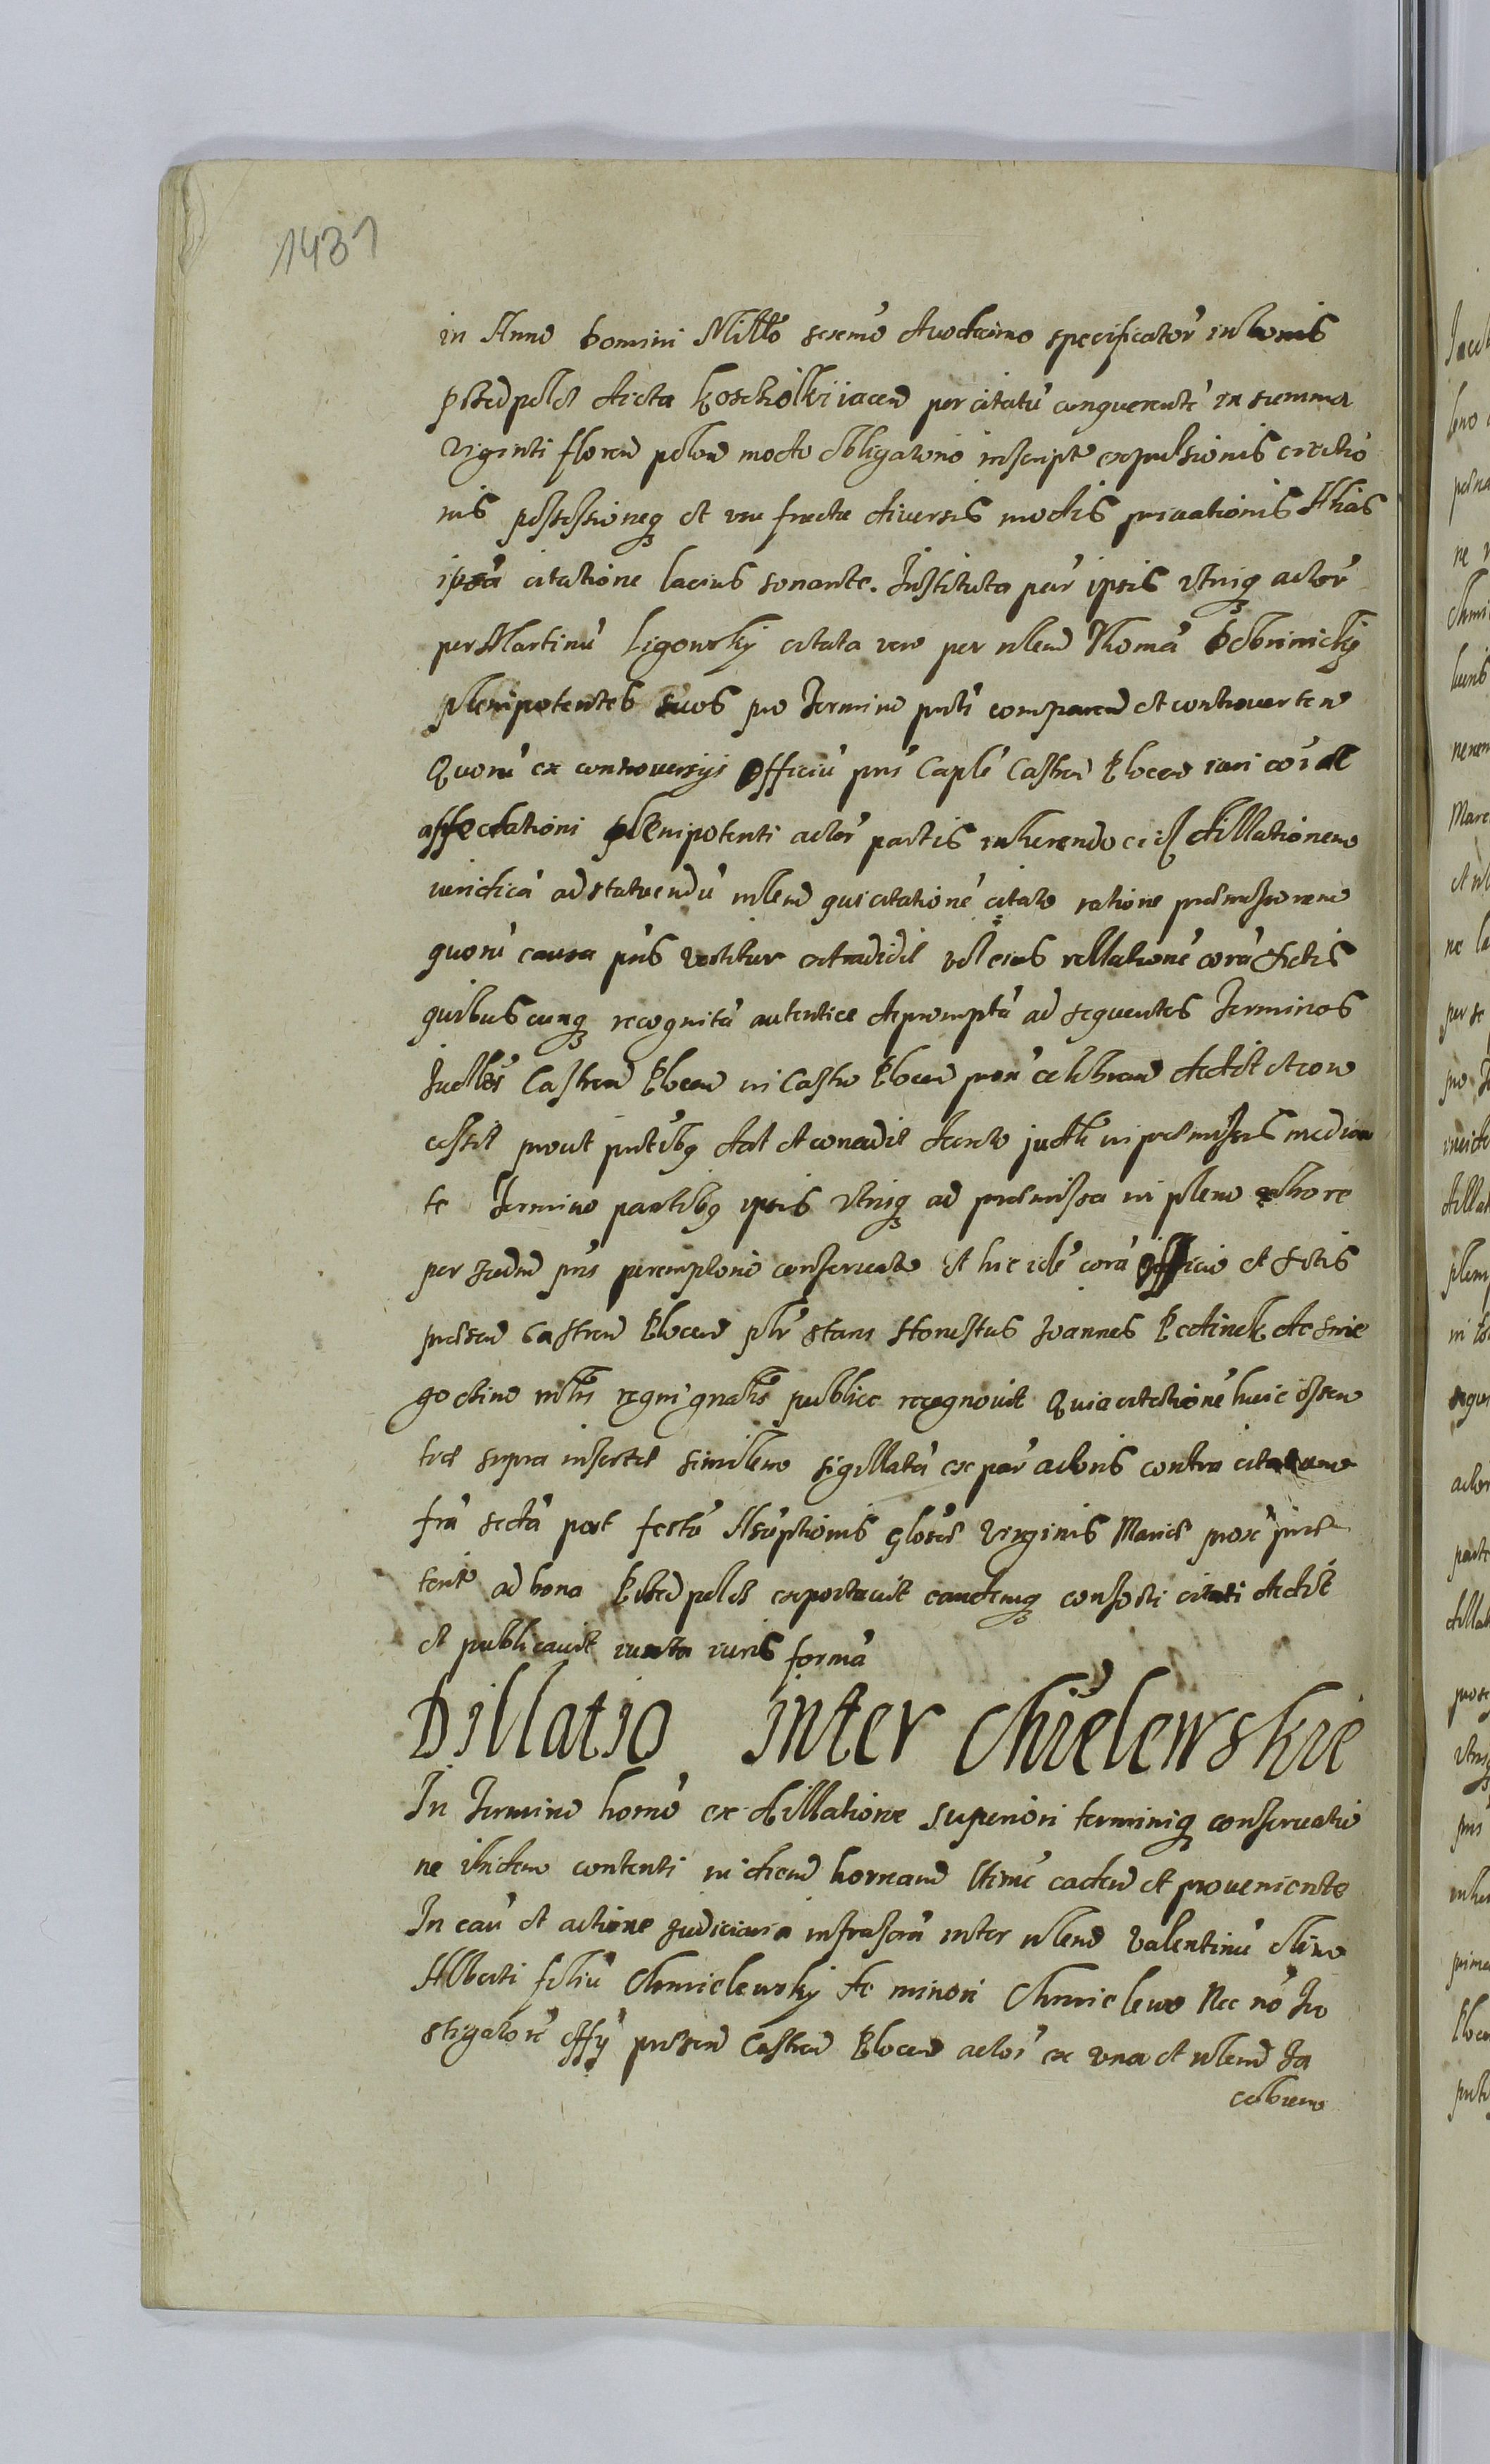 1431
in Anno Domini Millo sexmo duodecimo specificator in bonis
dicta Koscholki iacen per citatu conquerente in summa
viginti floren polon modo obligatorio inscript expulsionis evictio
nis possessioneq et usu fructu diversis modis privationis Alias
ipsa citatione lacius sonante. Instituta par ipsis utriq actor
per Martinu Ligowsky citata vero per nlem Thoma Dobrinicky
plenipotentes suos pro Termino pnti comparen et controverten
Quoru ex controversijs Officiu pns Caple Castren Plocen iuri
affectationi plenipotenti actor partis inherendo dillationem
iuridica ad statuendu nlem qui citatione citato ratione praemissorum
quoru causa pns vertitur extradidit vel eius rellatione cora Actis
quibuscunq recognita autentice deprompta ad sequentes Terminos
Judles Castren Plocen in Castro Plocen celebran dedit et con
cessit prout pntibg dat et concedit decreto judle in praemissis median
te Termino partibg ipsis utriq ad praemissa in pleno robore
per eadm pns peremptorio conservato Et hic ide cora officio et Actis
praesen Castren Plocen plr stans Honestus Joannes Bedinek de Snie
godino mlis regni gnalis publice recognovit Quia citatione huic
supra insertae similem sigillata ex par actoris contra citatum
fra sexta post festu Assuptionis glosae Virginis Mariae prox prae
terit ad bona exportavit eandemq consorti citati dedit
et publicavit iuxta iuris forma
Dillatio inter Chmielewskie
In Termino horno ex dillatione superiori terminiq conservatio
ne ibidem contenti in diem hornam caden et proveniente
In cau et actione Judiciaria infrascra inter nlem Valentinu olim
Alberti filiu Chmielewsky de minori Chmielewo Nec no In
stigatore offy praesen Castren Plocen actor ex una et nlem Ja
cobum